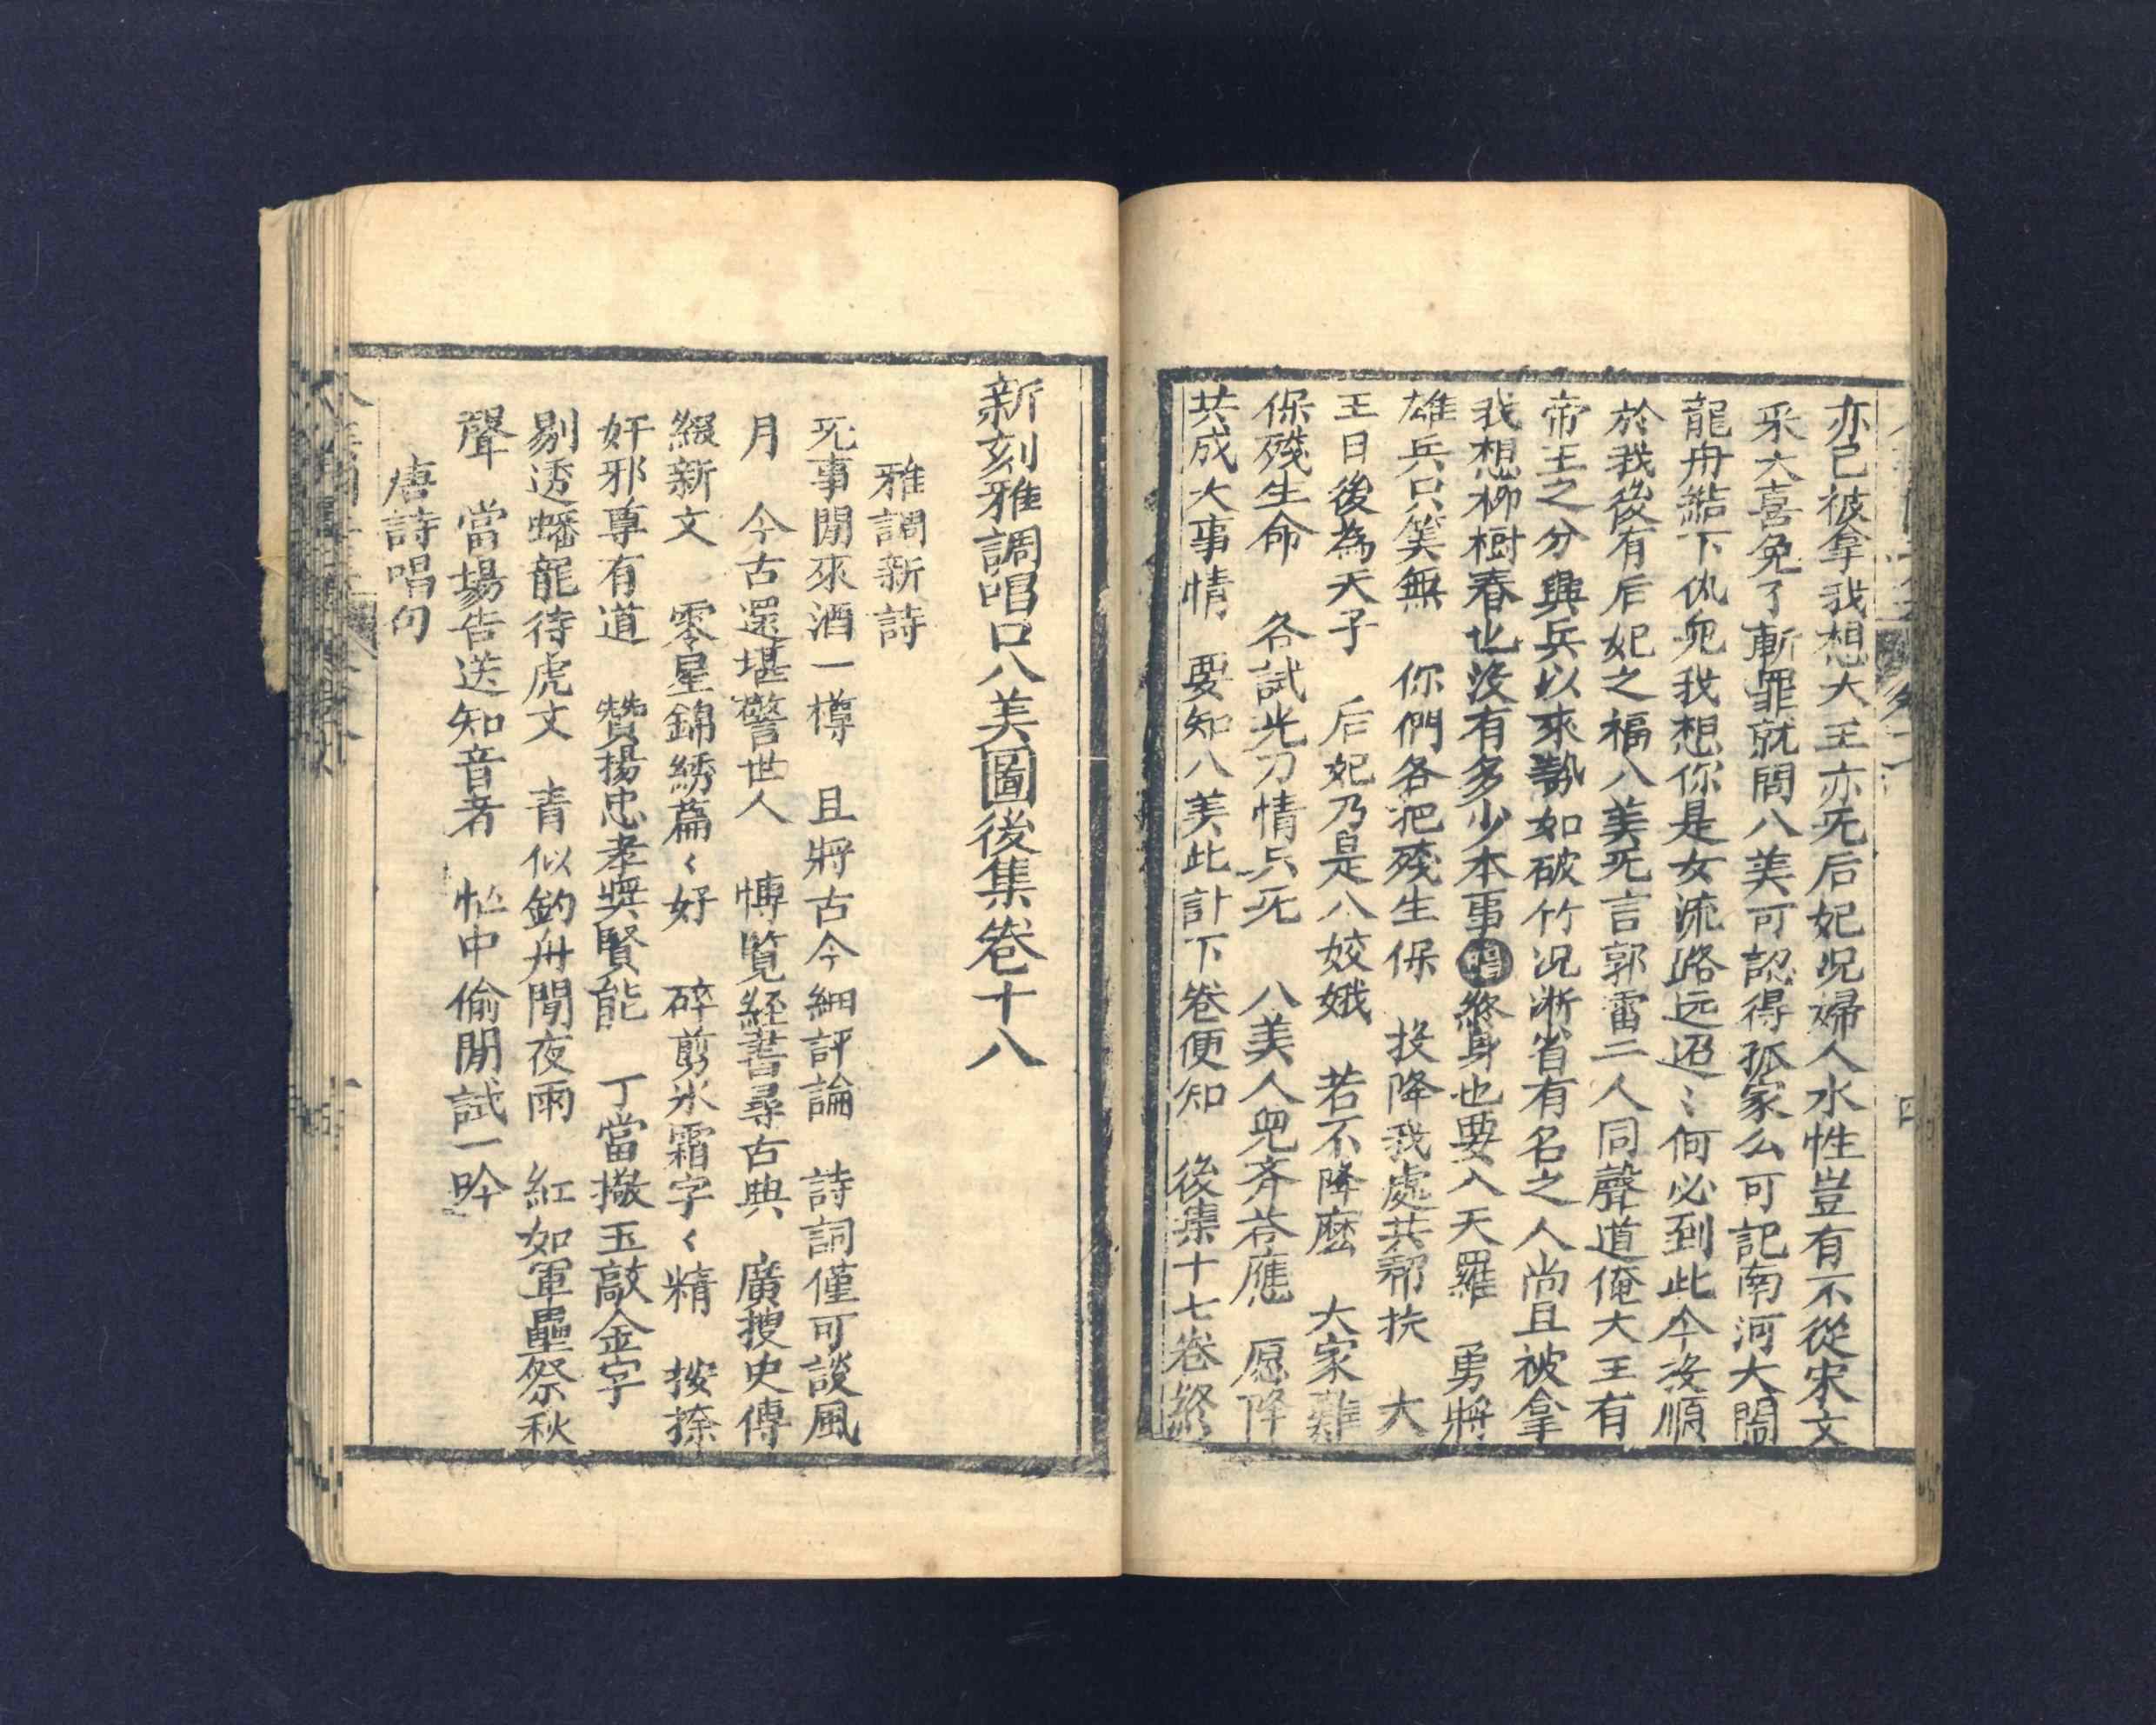 亦已被拿我想大王亦死后妃况婦人水性豈有不從宋文
采大喜免了斬罪就問八美可認得孤家么可記南河大鬧
龍舟結下仇兜我想你是女流路远迢〻何必到此今汝順
於我後有后妃之福八美死言郭雷二人同聲道俺大王有
帝王之分興兵以來勢如破竹况浙省有名之人尚且被拿
我想柳樹春也没有多少本事唱終身也要入天羅　勇將
雄兵只笑無　你們各把殘生保　投降我處共帮扶　大
王日後為天子　后妃乃是八姣娥　若不降麼　大家難
保殘生命　各試光刀情只死　八美人兜齐荅應　愿降
共成大事情　要知八美此計下卷便知　後集十七卷終
新刻雅調唱口八美圖後集卷十八
雅調新詩
旡事閒來酒一樽　且將古今細評論　詩詞僅可談風
月　今古還堪警世人　愽覧經書尋古典　廣搜史傳
綴新文　零星錦綉篇〱好　碎剪氷霜字〱精　按捺
奸邪尊有道　贊揚忠孝獎賢能　丁當撒玉敲金字
剔透蟠龍待虎文　青似釣舟聞夜雨　紅如軍壘祭秋
聲　當場告送知音者　忙中偷閒試一吟
唐詩唱句